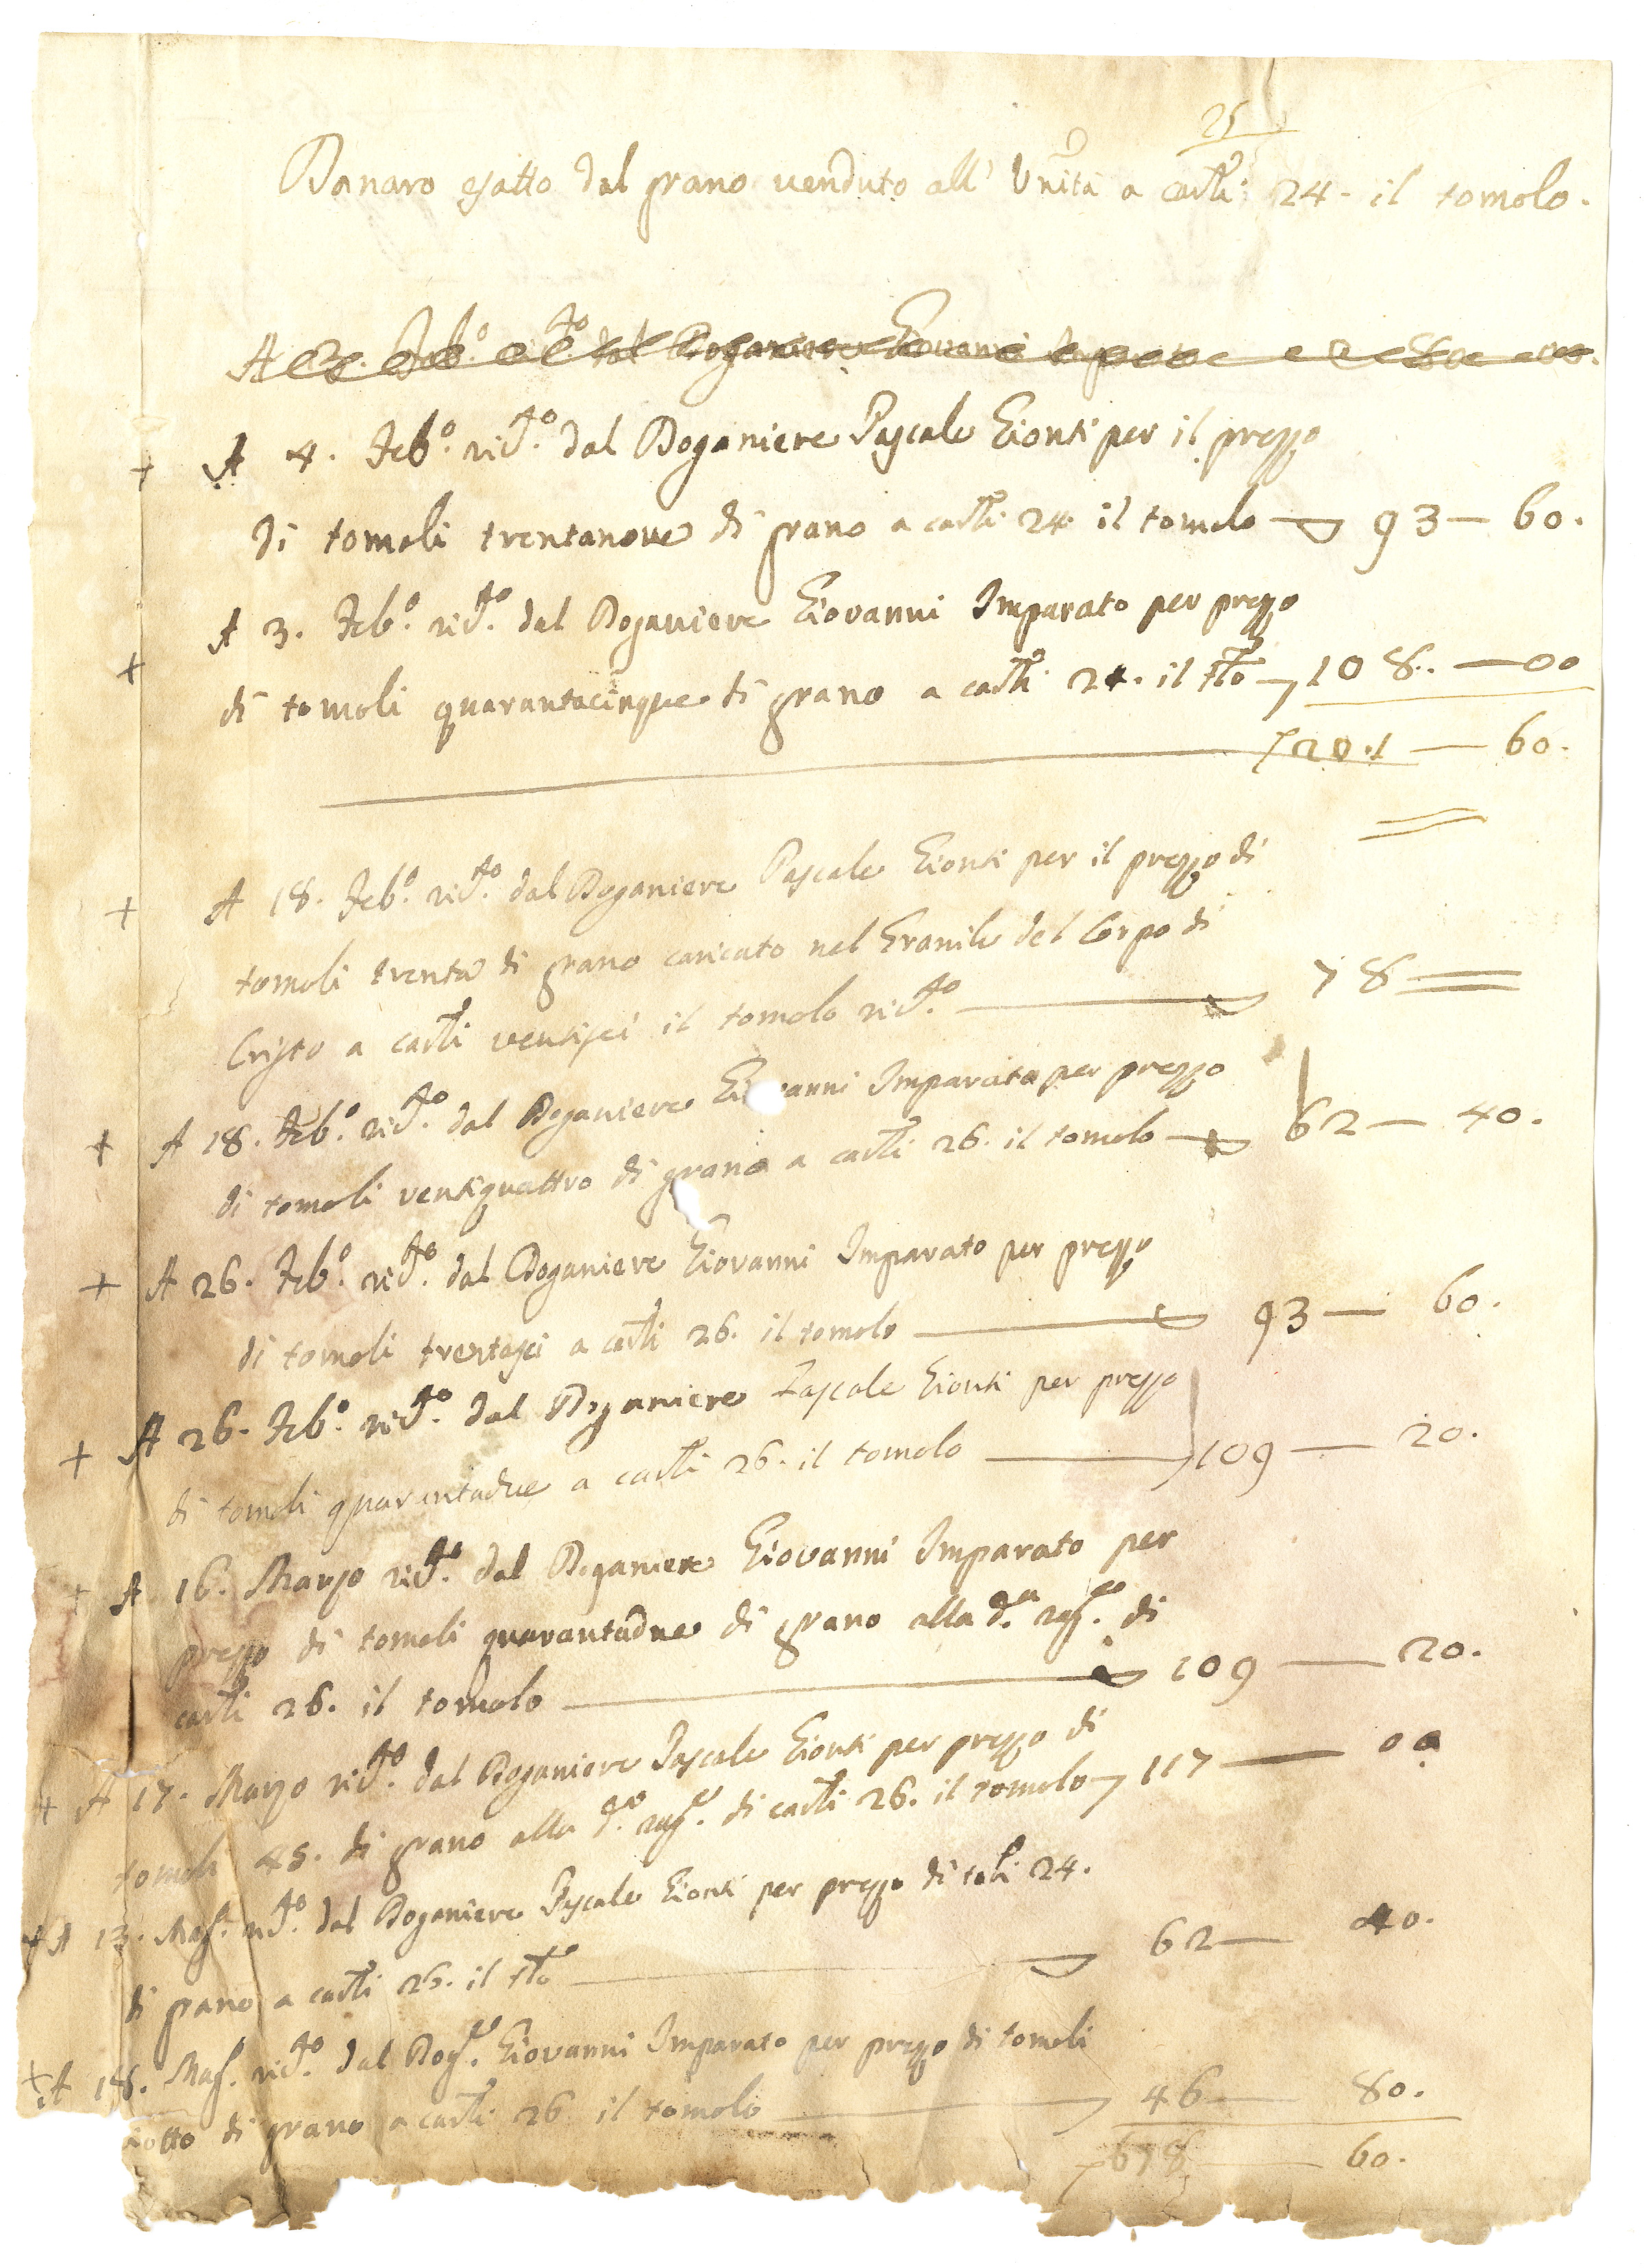 25
Danaro esatto dal grano venduto all' Unità a carlⁱ 24. il tomolo.
A 3. Feb.º dal Doganiere Giovanni Imparato
+ A 4. Feb.º ric.to dal Doganiere Pascale Gionti per il prezzo
di tomoli trentanove di grano a carlⁱ 24 il tomolo — 93 — 60.
+ A 3. Feb.º ric.to dal Doganiere Giovanni Imparato per prezzo
di tomoli quarantacinque di grano a carlⁱ 24. il t.lo — 108. — 00
201 — 60.
+ A 18. Feb.º ric.to dal Doganiere Pascale Gionti per il prezzo di
tomoli trenta di grano caricato nel Granile del Corpo di
Cristo a carlⁱ ventisei il tomolo ric.to — 78 =
+ A 18. Feb.º ric.to dal Doganiere Gi vanni Imparato per prezzo
di tomoli ventiquattro di grano a carlⁱ 26. il tomolo — 62 — 40.
+ A 26. Feb.º ric.to dal Doganiere Giovanni Imparato per prezzo
di tomoli trentasei a carlⁱ 26. il tomolo — 93 — 60.
+ A 26. Feb.º ric.to dal Doganiere Pascale Gionti per prezzo
di tomoli quarantadue a carlⁱ 26. il tomolo — 109 — 20.
+ A 16. Marzo ric.to dal Doganiere Giovanni Imparato per
prezzo di tomoli quarantadue di grano alla d.ª rag.e di
carlⁱ 26. il tomolo — 109 — 20.
+ A 17. Marzo ric.to dal Doganiere Pascale Gionti per prezzo di
tomoli 45. di grano alla d.ª rag.e di carlⁱ 26. il tomolo — 117 — 00
+ A 13. Mag.º ric.to dal Doganiere Pascale Gionti per prezzo di to.li 24.
di grano a carlⁱ 26. il t.lo — 62 — 40.
+ A 18. Mag.º ric.to dal Dog.e Giovanni Imparato per prezzo di tomoli
otto di grano a carlⁱ 26 il tomolo — 46 — 80.
678 — 60.